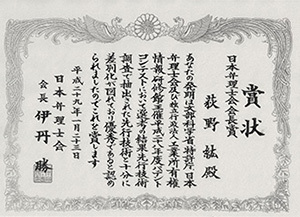 賞状
日本弁理士会会長賞
荻野紘殿
あなたの発明は文部科学省特許庁日本
弁理士会及び独立行政法人工業所有権
情報・研修館主催平成二十八年度パテント
コンテストにおいて選考の結果先行技術
調査で抽出された先行技術と十分に
差別化が図れており優秀であると認め
られましたのでこれを賞します
平成二十九年一月二十三日
日本弁理士会
会長 伊丹勝